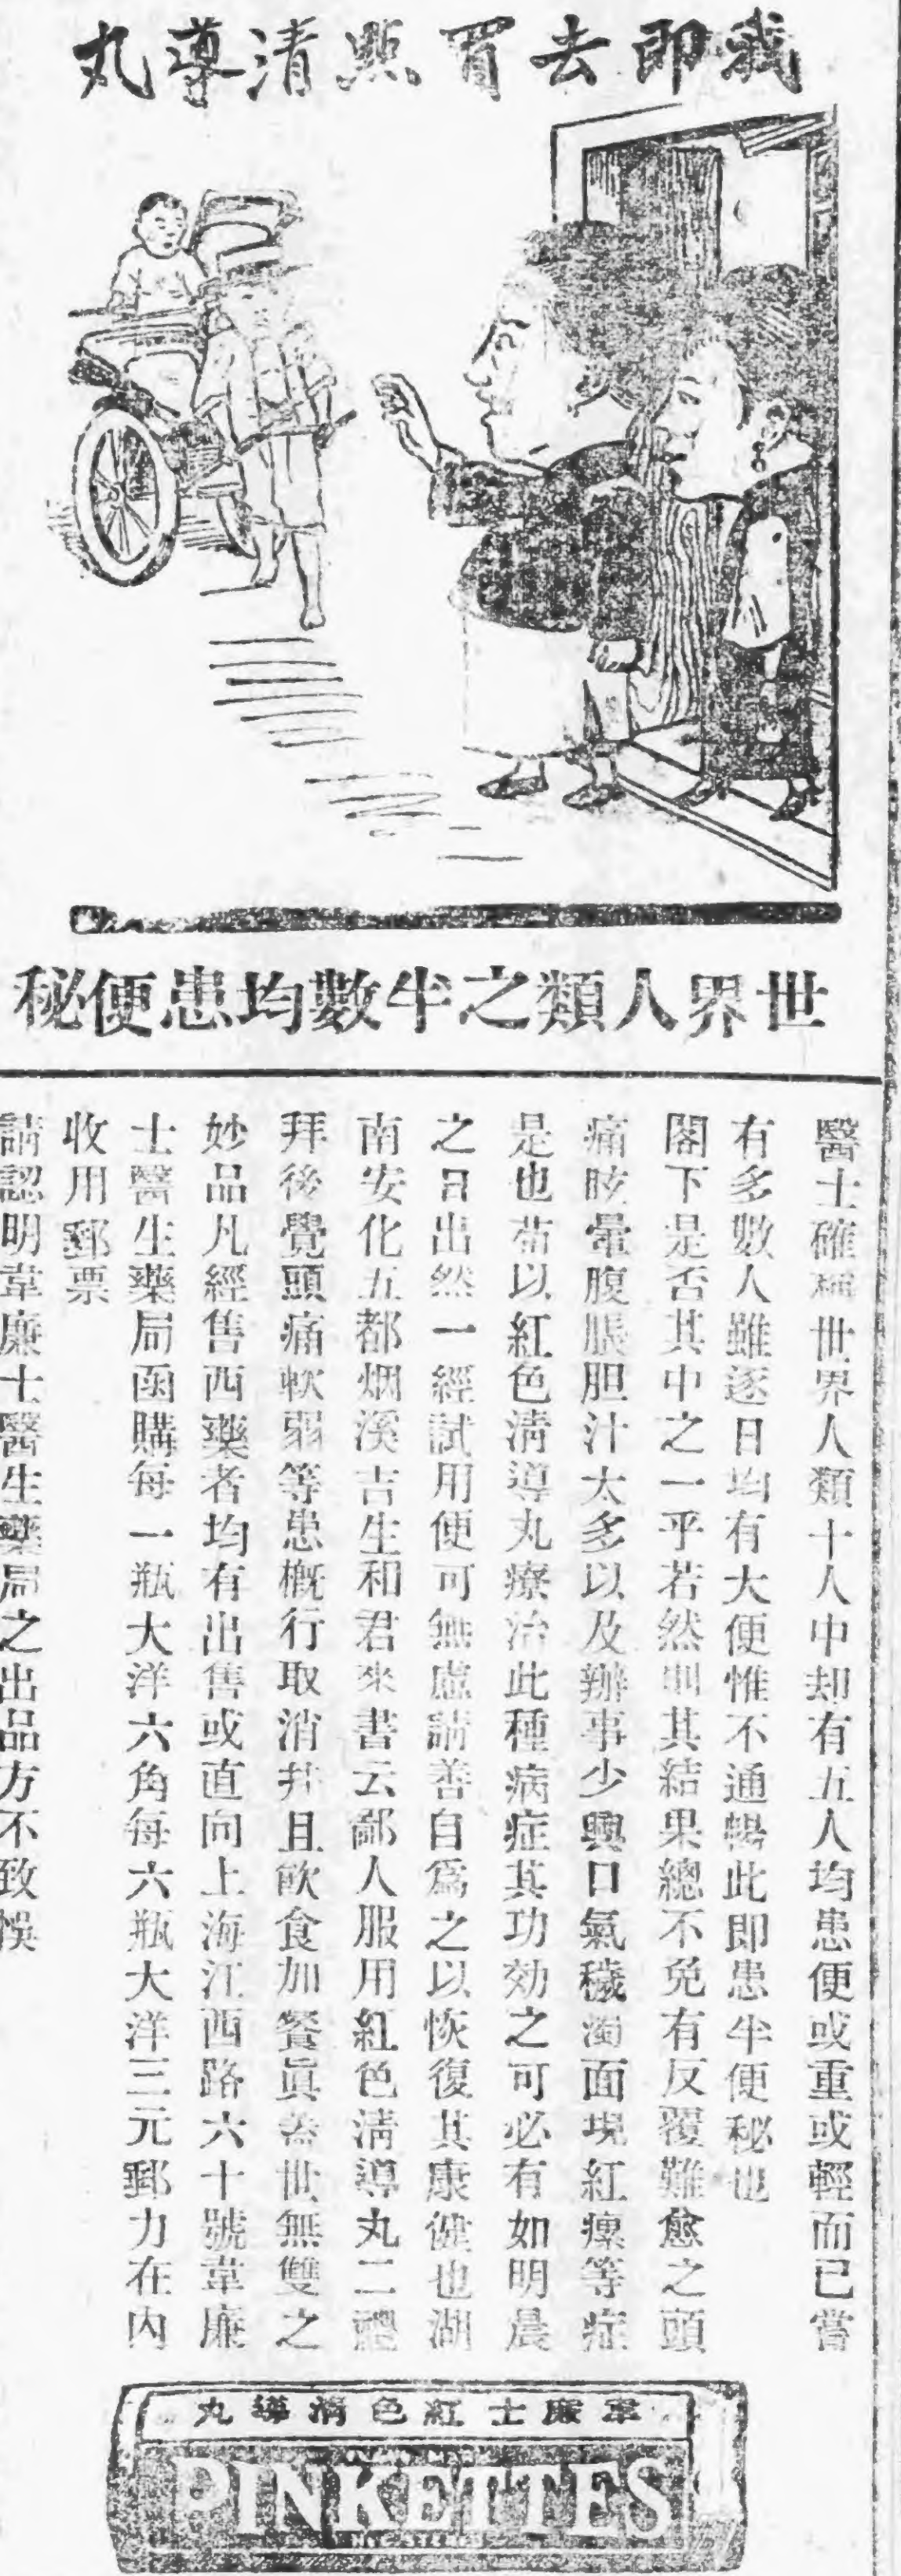 我即去買點清導丸
世界人類之半數均患便秘
醫士確稱世界人類十人中却有五人均患便或重或輕而已嘗
有多數人雖逐日均有大便惟不通暢此即患半便秘也
閣下是否其中之一乎若然則其結果總不免有反覆難愈之頭
痛眩暈腹脹胆汁太多以及辦事少興口氣穢濁面現紅瘰等症
是也茍以紅色淸導丸療治此種病症其功効之可必有如明晨
之日出然一經試用便可無慮請善自爲之以恢復其康健也湖
南安化五都烟溪吉生和君來書云鄙人服用紅色淸導丸二禮
拜後覺頭痛軟弱等患概行取消并且飲食加餐眞蓋世無雙之
妙品凡經售西藥者均有出售或直向上海江西路六十號韋廉
士醫生藥局函購每一瓶大洋六角每六瓶大洋三元郵力在內
收用郵票
請認明韋廉士醫生藥局之出品方不致悞
韋廉士紅色淸導丸
PINKETTES